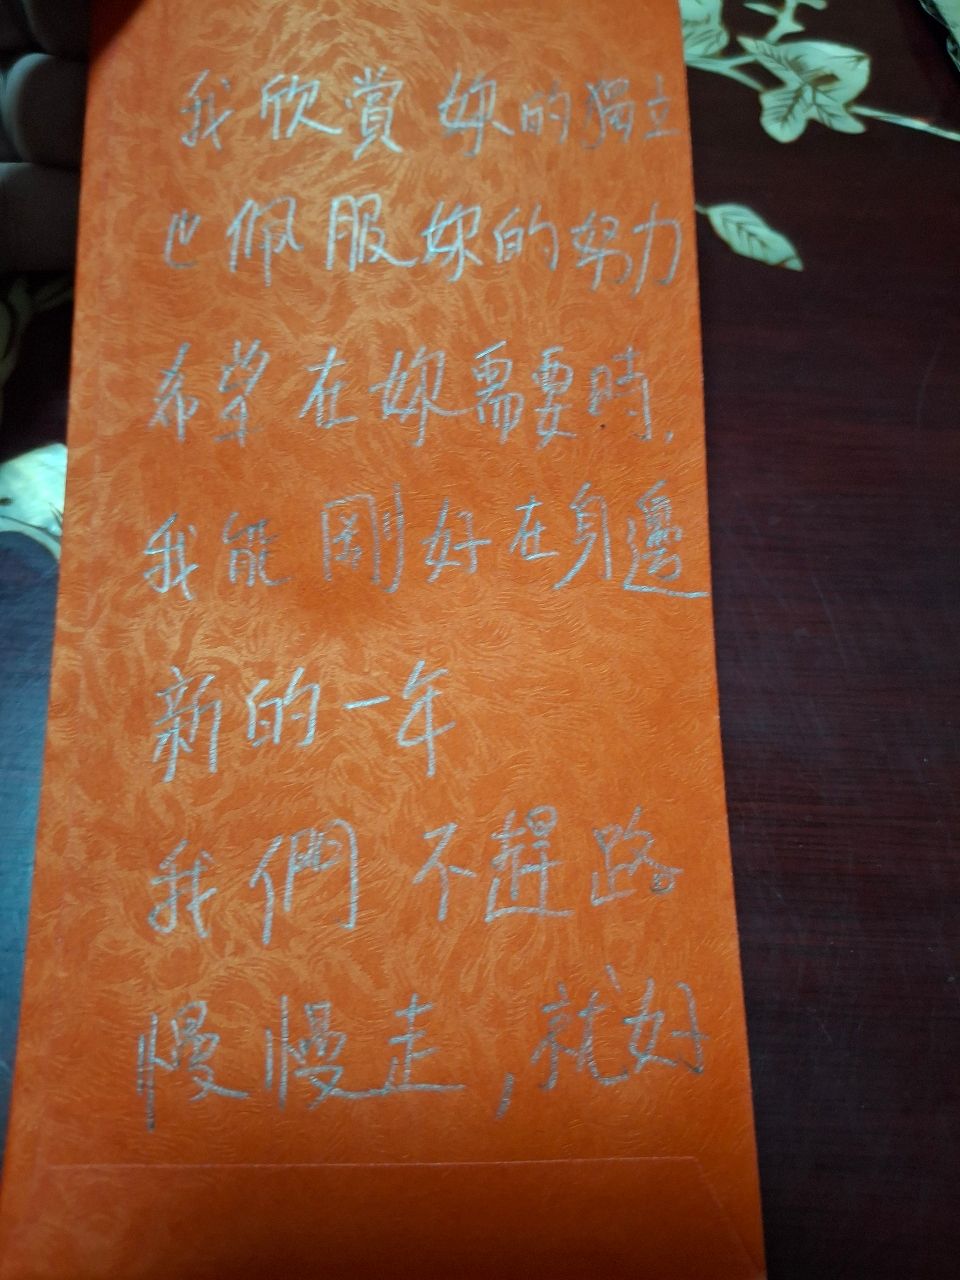 我欣賞妳的獨立
也佩服妳的努力
希望在妳需要時,
我能剛好在身邊
新的一年
我們不趕路
慢慢走,就好